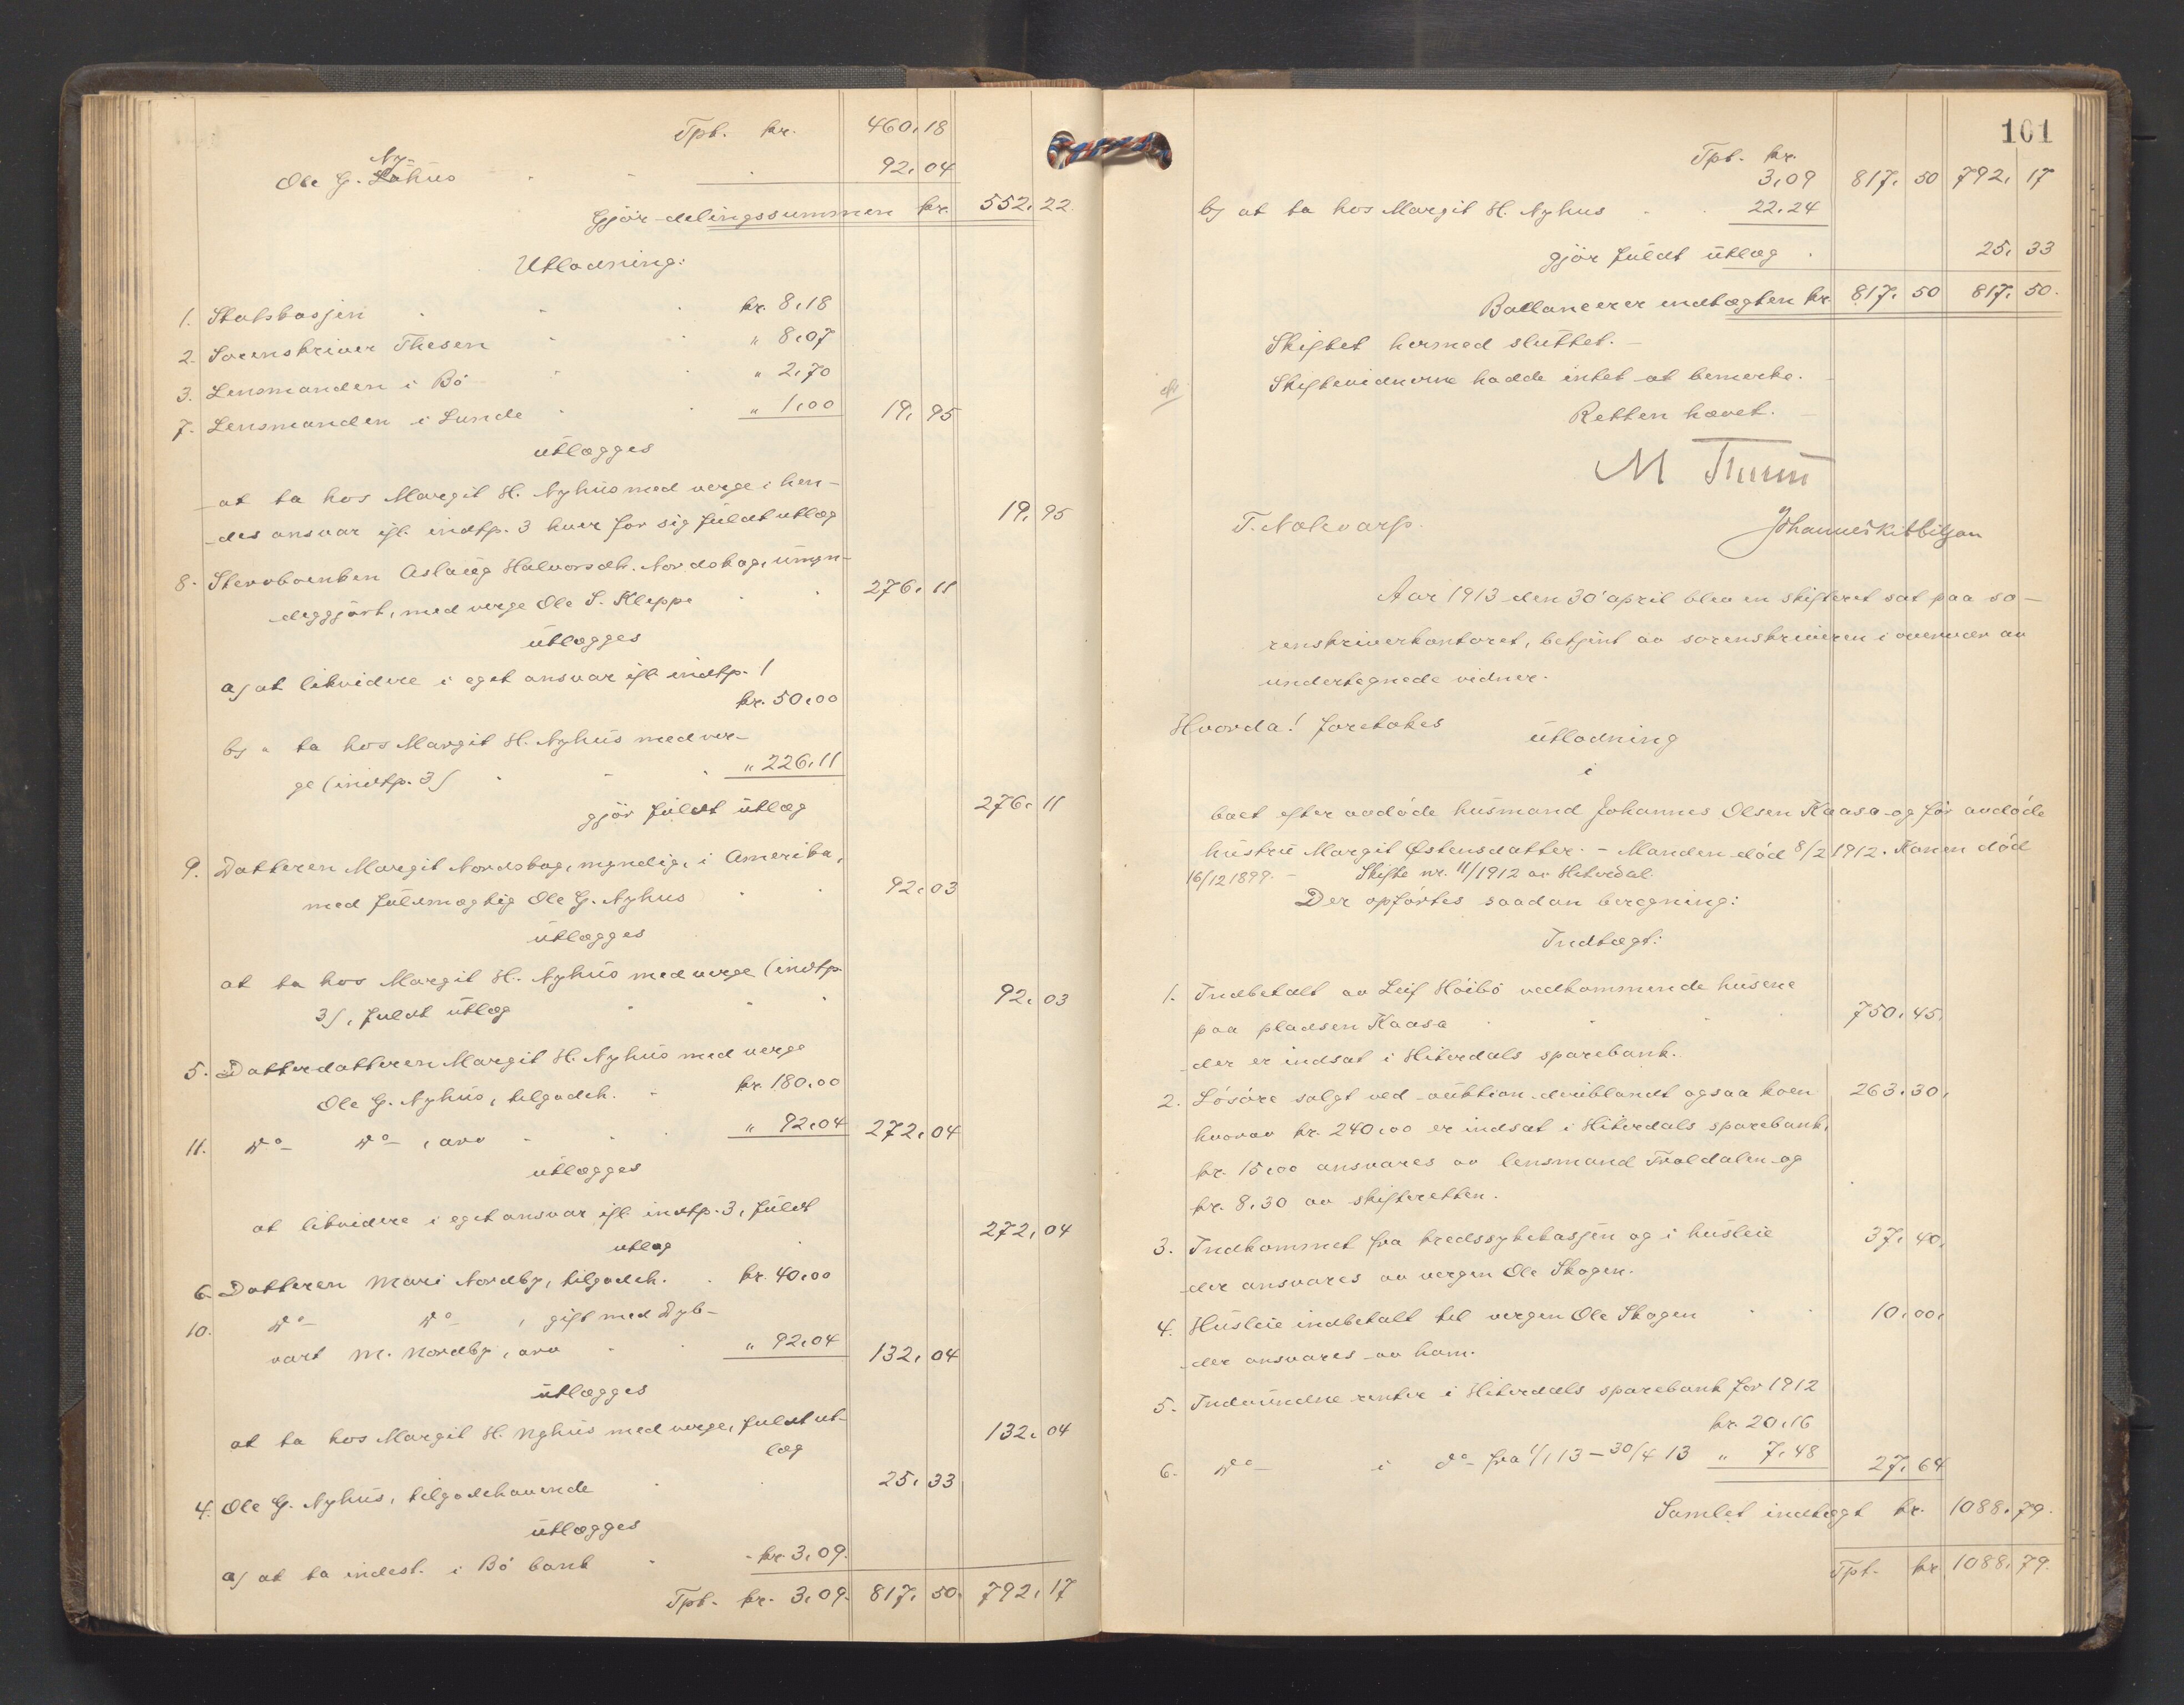 Tpt. kr. 460,18
Ole G. Nyhus 92,04
Gjør delingssummen kr. 552,22
Utlodning:
1. Statskassjen kr. 8,18
2. Sorenskriver Thesen " 8,07
3. Lensmanden i Bö " 2,70
7. Lensmanden i Lunde " 1,00 19,95
utlægges
at ta hos Margit H. Nyhus med verge i hen-
des ansvar ifl. indtp. 3 hver for sig fuldt utlæg 19,95
8. Stervboenken Aslaug Halvorsdtr. Nordskog, umyn-
diggjort, med verge Ole S. Kleppe 276,11
utlægges
a) at likvidere i eget ansvar ifl. indtp. 1
kr. 50,00
b) " ta hos Margit H. Nyhus med ver-
ge (indtp. 3) " 226,11
gjør fuldt utlæg 276,11
9. Datteren Margit Nordskog, myndig, i Amerika,
med fuldmægtig Ole G. Nyhus 92,03
utlægges
at ta hos Margit H. Nyhus med verge (indtp.
3), fuldt utlæg 92,03
5. Datterdatteren Margit H. Nyhus med verge
Ole G. Nyhus, tilgodeh. kr. 180,00
11. do do, arv " 92,04 272,04
utlægges
at likvidere i eget ansvar ifl. indtp. 3, fuldt
utlæg 272,04
6. Datteren Mari Nordby, tilgodeh. kr. 40,00
10. do do, gift med Dyb-
vart M. Nordby, arv " 92,04 132,04
utlægges
at ta hos Margit H. Nyhus med verge, fuldt ut-
læg 132,04
4. Ole G. Nyhus, tilgodehavende 25,33
utlægges
a) at ta indest. i Bö bank kr. 3,09
Tpt. kr. 3,09 817,50 792,17
101
Tpt. kr.
3,09 817,50 792,17
b) at ta hos Margit H. Nyhus 22,24
gjør fuldt utlæg 25,33
Ballancerer indtægten kr. 817,50 817,50
Skiftet hermed sluttet. -
Skiftevidnerne hadde intet at bemerke.
Retten hævet. -
M Thesen
T. Nakvarp. Johannes Kittilsen
Aar 1913 den 30' april blev en skifteret sat paa so-
renskriverkontoret, betjent av sorenskriveren i overvær av
undertegnede vidner.
Hvorda! foretokes
utlodning
i
boet efter avdøde husmand Johannes Olsen Kaasa og før avdøde
hustru Margit Østensdatter. - Manden død 8/2 1912. Konen død
16/12 1899. - Skifte nr. 11/1912 av Hiterdal.
Der opførtes saadan beregning:
Indtægt:
1. Indbetalt av Leif Höibö vedkommende husene
paa pladsen Kaasa 750,45
der er indsat i Hiterdals sparebank.
2. Lösöre solgt ved auktion deriblandt ogsaa koen 263,30
hvorav kr. 240,00 er indsat i Hiterdals sparebank,
kr. 15,00 ansvares av lensmand Traldalen og
kr. 8,30 av skifteretten.
3. Indkommet fra kredssykekassjen og i husleie 37,40
der ansvares av vergen Ole Skogen.
4. Husleie indbetalt til vergen Ole Skogen 10,00
der ansvares av ham.
5. Indvundne renter i Hiterdals sparebank for 1912
kr. 20,16
6. do i do fra 1/1 13 - 30/4 13 " 7,48 27,64
Samlet indtægt kr. 1088,79
Tpt. kr. 1088,79